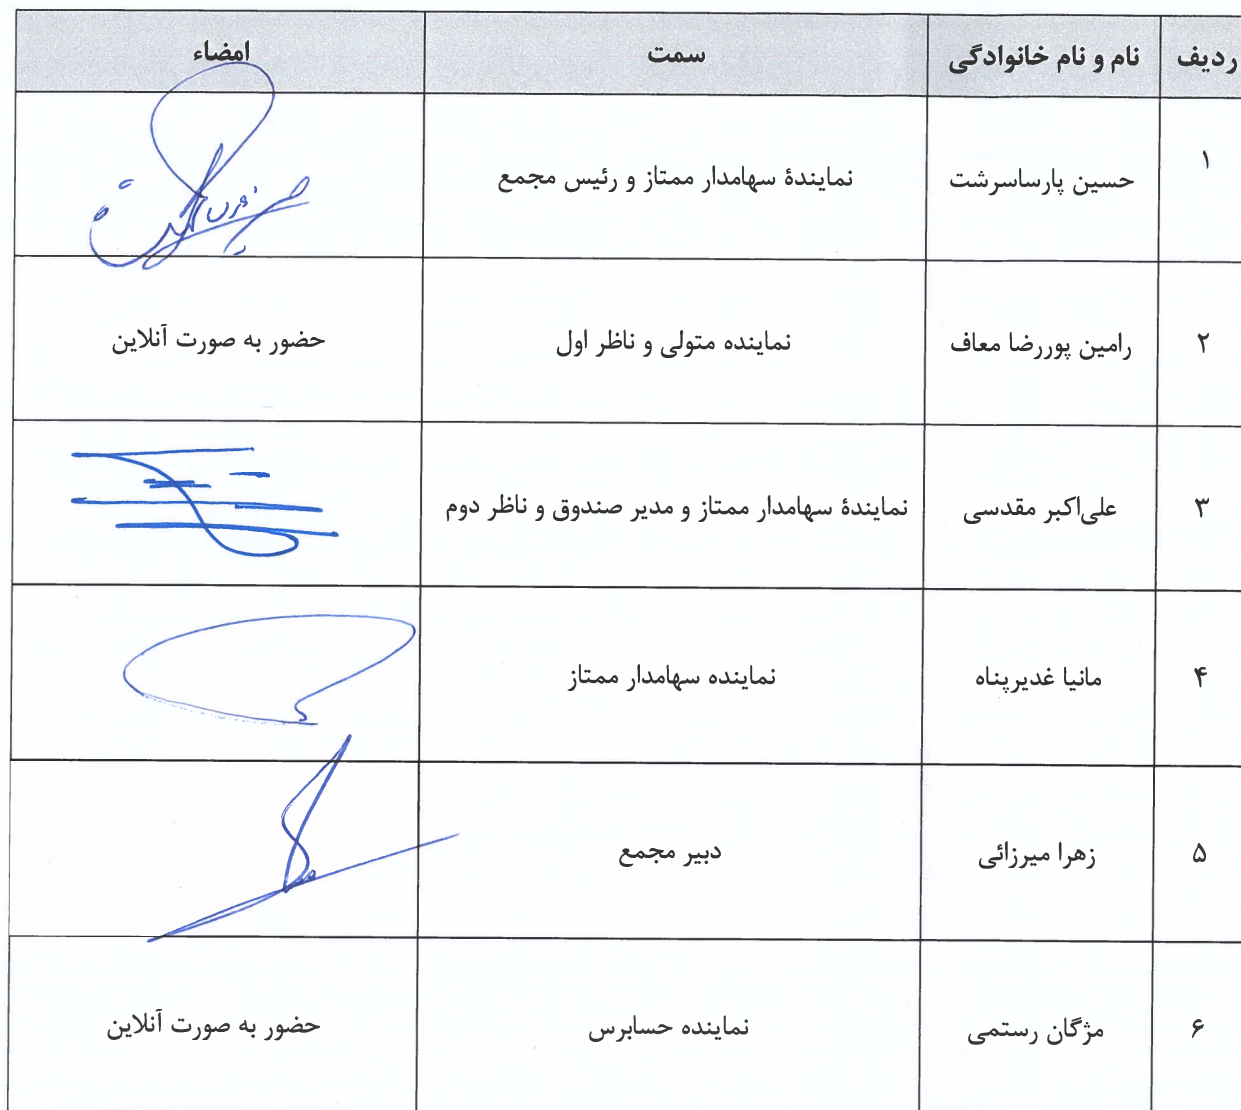 ردیف نام و نام خانوادگی سمت امضاء
۱ حسین پارساسرشت نمایندهٔ سهامدار ممتاز و رئیس مجمع
۲ رامین پوررضا معاف نماینده متولی و ناظر اول حضور به صورت آنلاین
۳ علی‌اکبر مقدسی نمایندهٔ سهامدار ممتاز و مدیر صندوق و ناظر دوم
۴ مانیا غدیرپناه نماینده سهامدار ممتاز
۵ زهرا میرزائی دبیر مجمع
۶ مژگان رستمی نماینده حسابرس حضور به صورت آنلاین